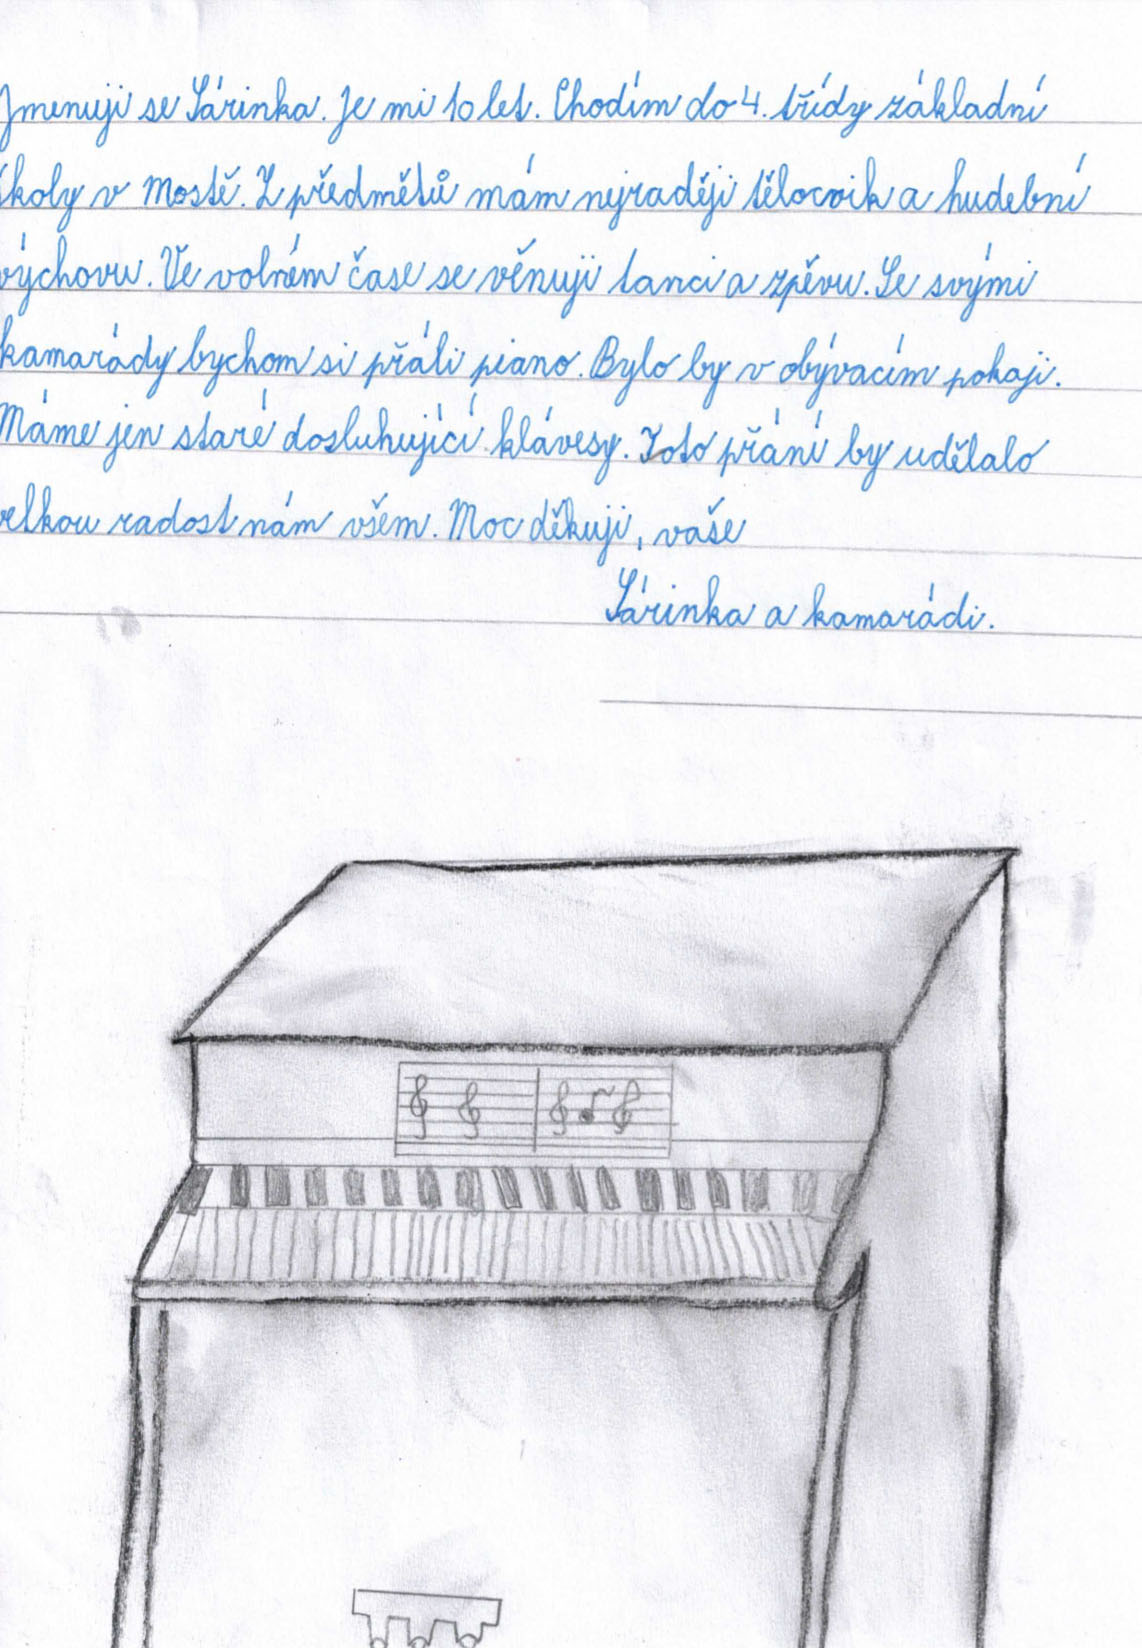 Jmenuji se Sárinka. Je mi 10 let. Chodím do 4. třídy základní
školy v Mostě. Z předmětů mám nejraději tělocvik a hudební
výchovu. Ve volném čase se věnuji tanci a zpěvu. Se svými
kamarády bychom si přáli piano. Bylo by v obývacím pokoji.
Máme jen staré dosluhující klávesy. Toto přání by udělalo
velkou radost nám všem. Moc děkuji, vaše
Sárinka a kamarádi.